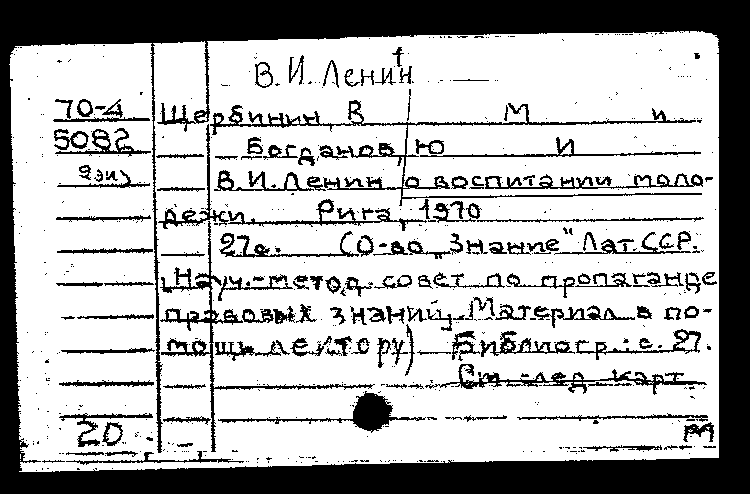 В.И.Ленин
70-4 Щербинин, В М и
5082 Богданов, Ю И
2экз В.И.Ленин о воспитании моло-
дежи. Рига, 1970
27с. (О-во „Знание" Лат.ССР.
Науч.-метод. совет по пропаганде
правовых знаний. Материал в по-
мощь лектору) Библиогр.: с. 27.
См. след. карт.
20 м